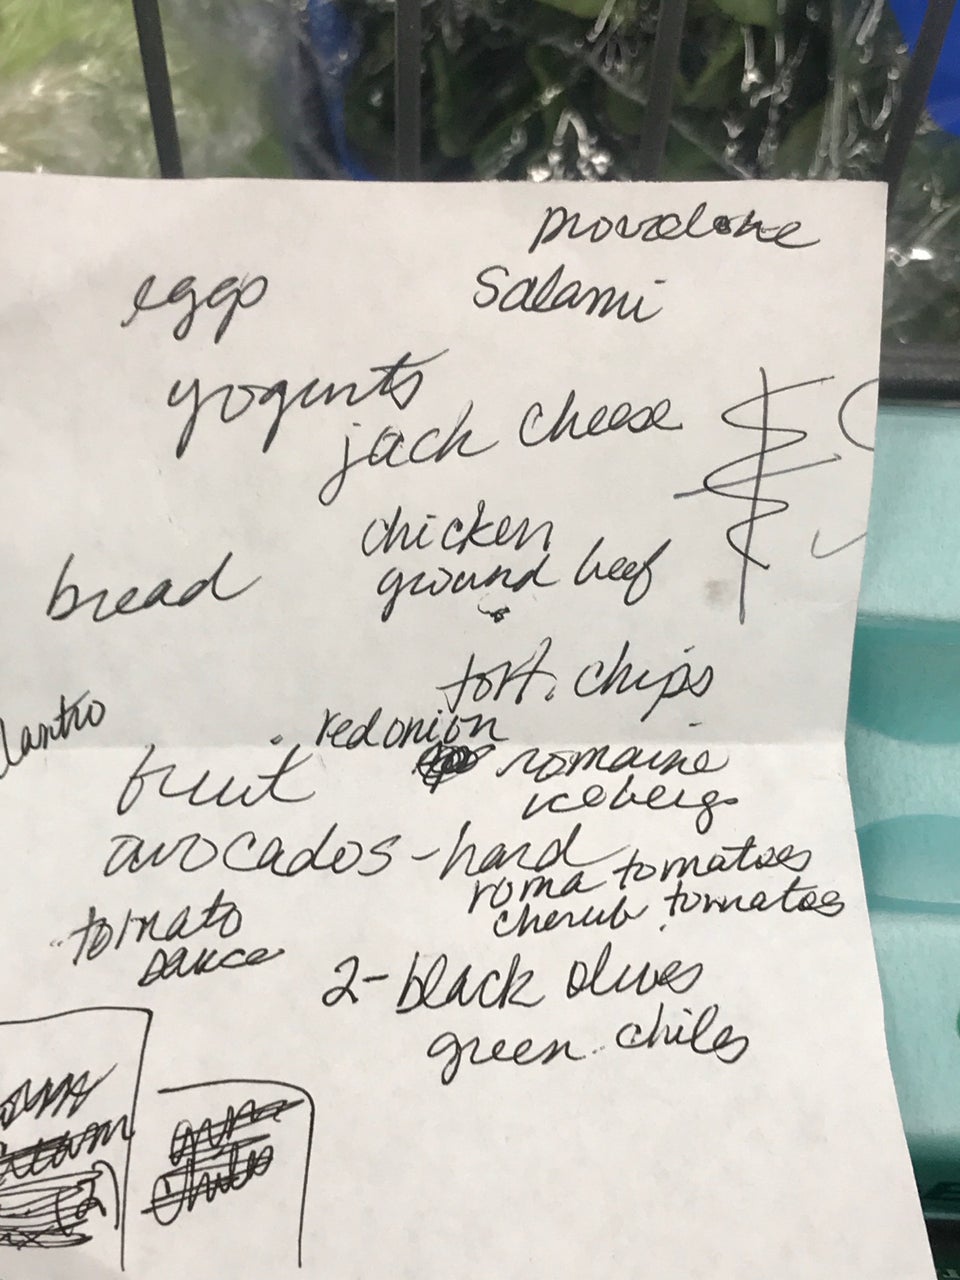 provolone
eggs
Salami
yogurts
jack cheese
chicken
bread
ground beef
tort. chips
lantro
red onion
fruit
romaine
iceberg
avocados - hard
roma tomatoes
cherub tomatoes
tomato
sauce
2 - black olives
green chiles
(2)